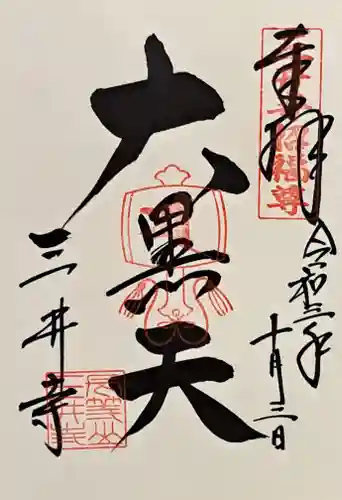 奉拝
令和三年
十月三日
大黒天
三井寺